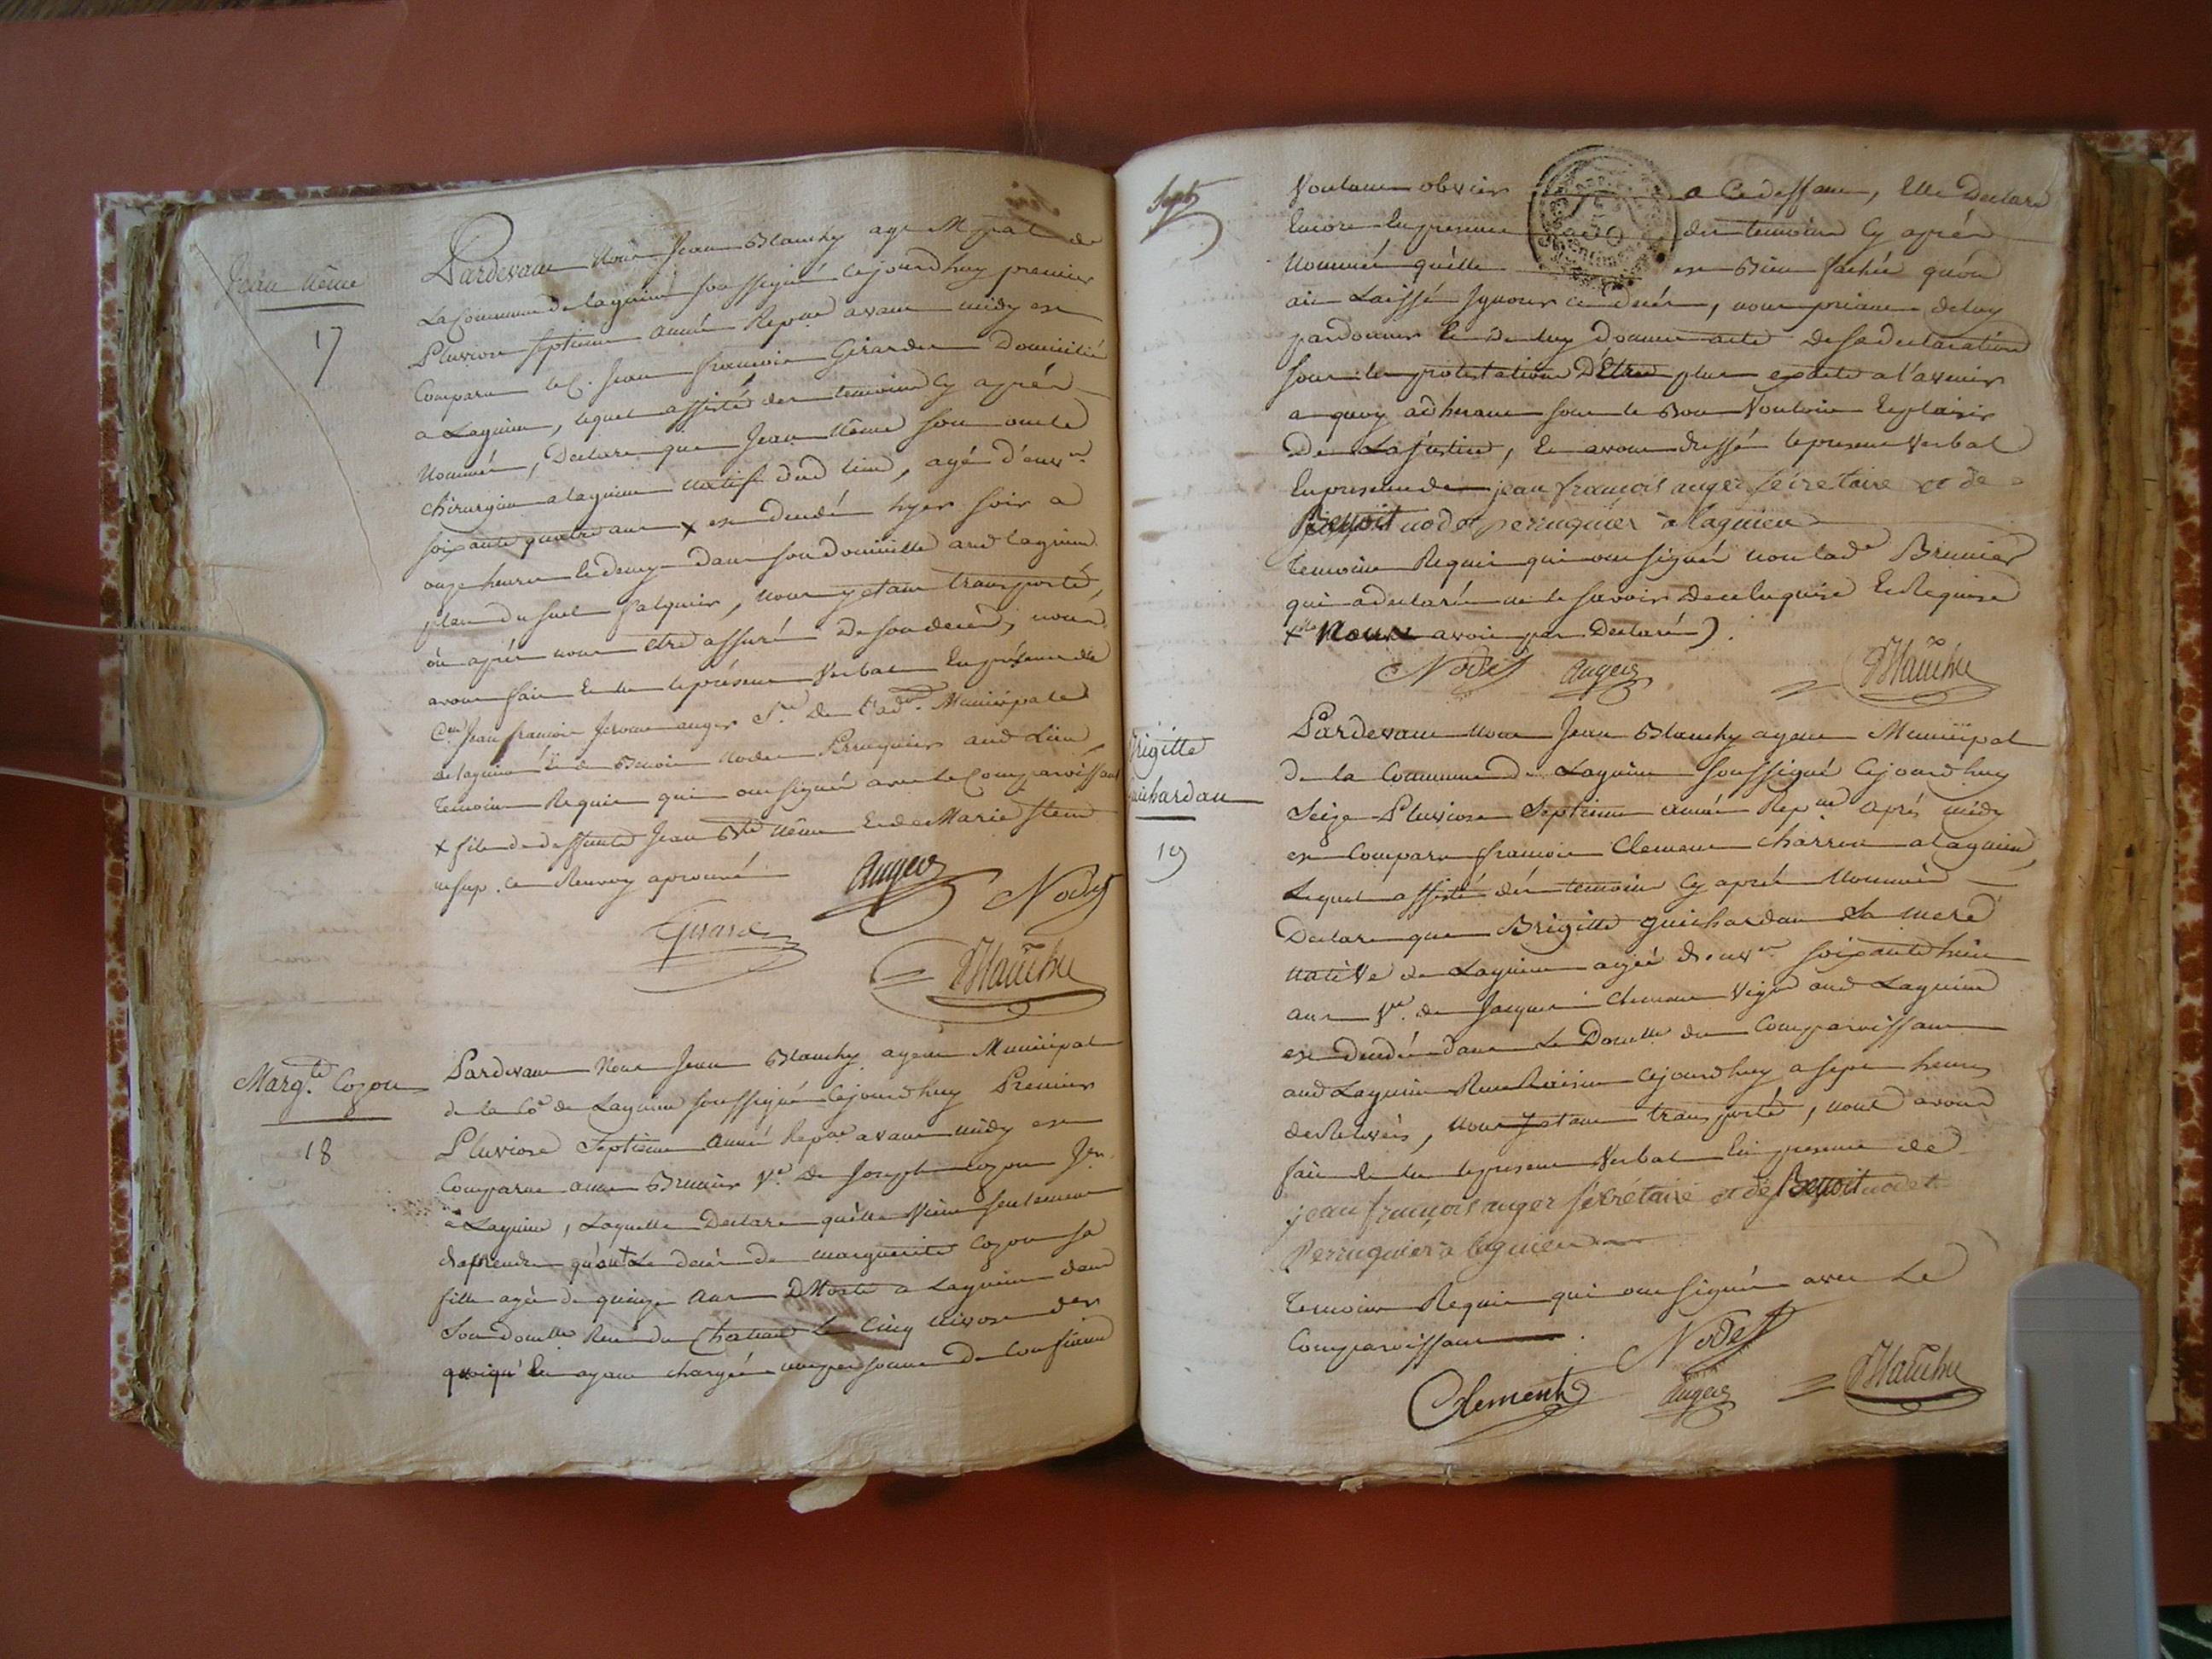 Jean Nême
17
Pardevant Nous Jean Blanchy agt Mpal de
La Commune de lagnieu soussigné cejourdhuy premier
Pluviose septieme année Repne avant midy est
Comparu le C. Jean francois Girardet Domicilié
a Lagnieu, lequel assisté des temoins Cy aprés
Nommés, Declare que Jean Nême son oncle
chirurgien a lagnieu natif dud lieu, agé d'envn
soixante quatre ans x est decedé hyer soir a
onze heures et demy dans son domicille aud lagnieu
place du four, nous y etant transporté,
où aprés nous etre assuré de son decés, nous
avons fait et lu le présent Verbal En présence de
Cen Jean francois Jerome auger Sre De l'adon Municipale
de lagnieu & de Benoit Nodet Perruquier aud Lieu
temoins Requis qui ont signés avec le Comparoissant
x fils de deffunts Jean Bte Nême et de Marie
ce Renvoy aprouvé
Auger
Nodet
Girardet
Blanchy
Margte Cozon
18
Pardevant Nous Jean Blanchy agent Municipal
de la Co de Lagnieu soussigné Cejourdhuy Premier
Pluviose Septieme année Repne avant midy est
Comparue anne Brunier Ve De Joseph cozon
a Lagnieu, Laquelle Declare qu'elle Vient seulement
d'aprendre qu'ont Le decés de marguerite Cozon sa
fille agée de quinze ans Morte a Lagnieu dans
Son domlle Rue du Chateau Le Cinq Nivose der
quoiqu'En ayant chargée une personne De Confiance
Sept
Voulant obvier a Ce deffaut, Elle Declare
Encore En presence des temoins Cy aprés
Nommés qu'elle est Bien fachée qu'on
ait Laissé Ignorer ce decés, nous priant de luy
pardonner Et de luy Donner acte De sa declaration
sous les protestations D'Etre plus exacte a l'avenir
a quoy adherant sous le Bon Vouloir Et plaisir
De La justice, Et avons dressé le present Verbal
En presence de jean françois auger sécretaire et de
Benoit nodet perruquier a lagnieu
temoins Requis qui ont signés non lade Brunier
qui a declaré ne le savoir De ce Enquise Et Requise
avoir par Declaré).
Nodet auger Blanchy
Brigitte
Guichardan
19
Pardevant Nous Jean Blanchy agent Municipal
de la Commune de Lagnieu soussigné Cejourd'huy
Seize Pluviose Septieme année Repne aprés midy
est Comparu francois Clement charron a lagnieu,
Lequel assisté des temoins Cy aprés Nommés
Declare que Brigitte guichardan Sa mere
native de Lagnieu agée d'envn soixante huit
ans Ve de Jacques Clement Vign aud Lagnieu
est decedée dans Le Domlle du Comparoissant
aud Lagnieu Rue Raisin cejourdhuy a sept heures
, nous y etant transporté, nous avons
fait et lu le present Verbal En presence de
jean françois auger sécrétaire et de Benoit nodet
Perruquier a lagnieu
temoins Requis qui ont signés avec Le
Comparoissant .
Nodet
Clement auger Blanchy